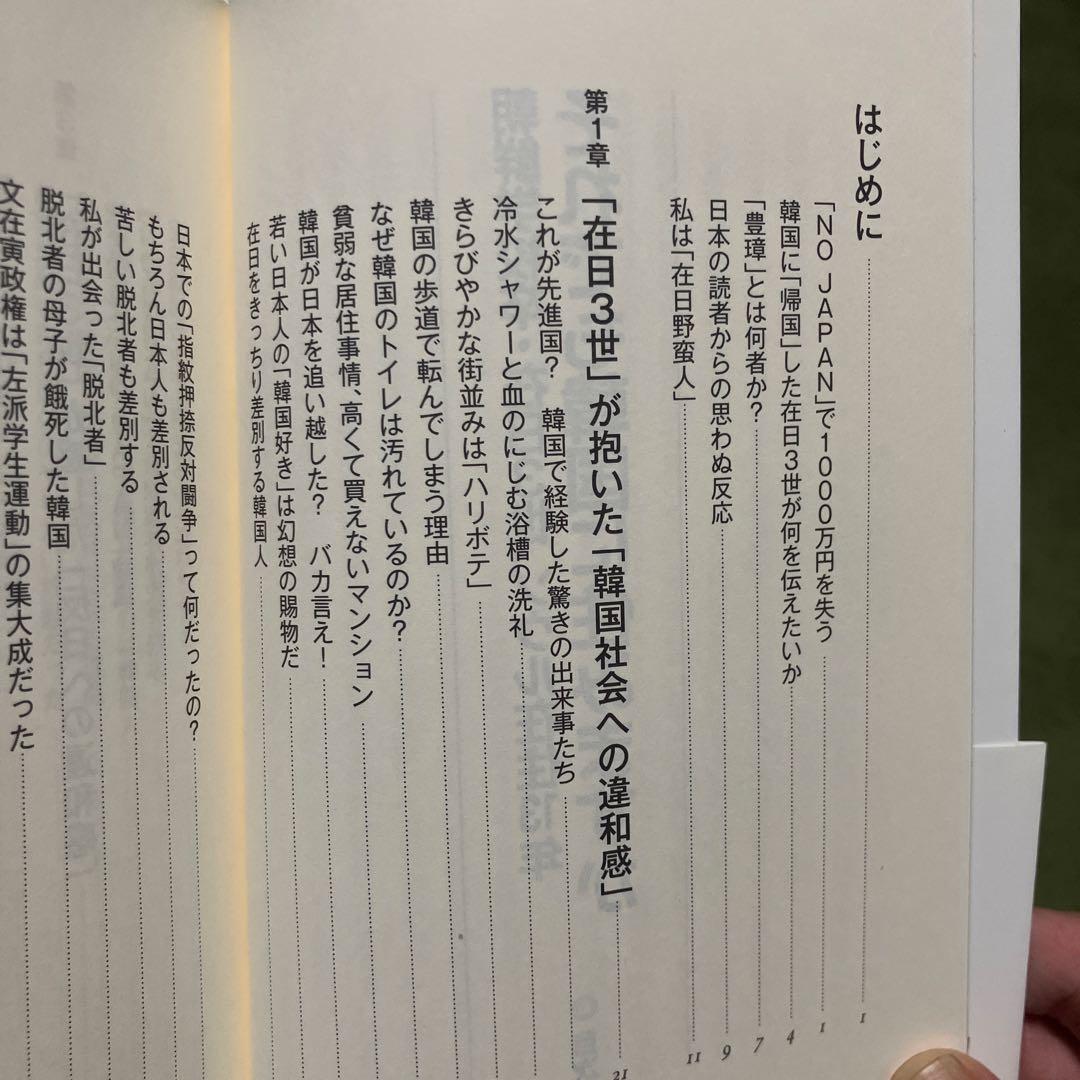 はじめに 1
「NO JAPAN」で1000万円を失う 1
韓国に「帰国」した在日3世が何を伝えたいか 4
「豊璋」とは何者か? 7
日本の読者からの思わぬ反応 9
私は「在日野蛮人」 11
第1章 「在日3世」が抱いた「韓国社会への違和感」 21
これが先進国? 韓国で経験した驚きの出来事たち
冷水シャワーと血のにじむ浴槽の洗礼
きらびやかな街並みは「ハリボテ」
韓国の歩道で転んでしまう理由
なぜ韓国のトイレは汚れているのか?
貧弱な居住事情、高くて買えないマンション
韓国が日本を追い越した? バカ言え!
若い日本人の「韓国好き」は幻想の賜物だ
在日をきっちり差別する韓国人
日本での「指紋押捺反対闘争」って何だったの?
もちろん日本人も差別される
苦しい脱北者も差別する
私が出会った「脱北者」
脱北者の母子が餓死した韓国
文在寅政権は「左派学生運動」の集大成だった